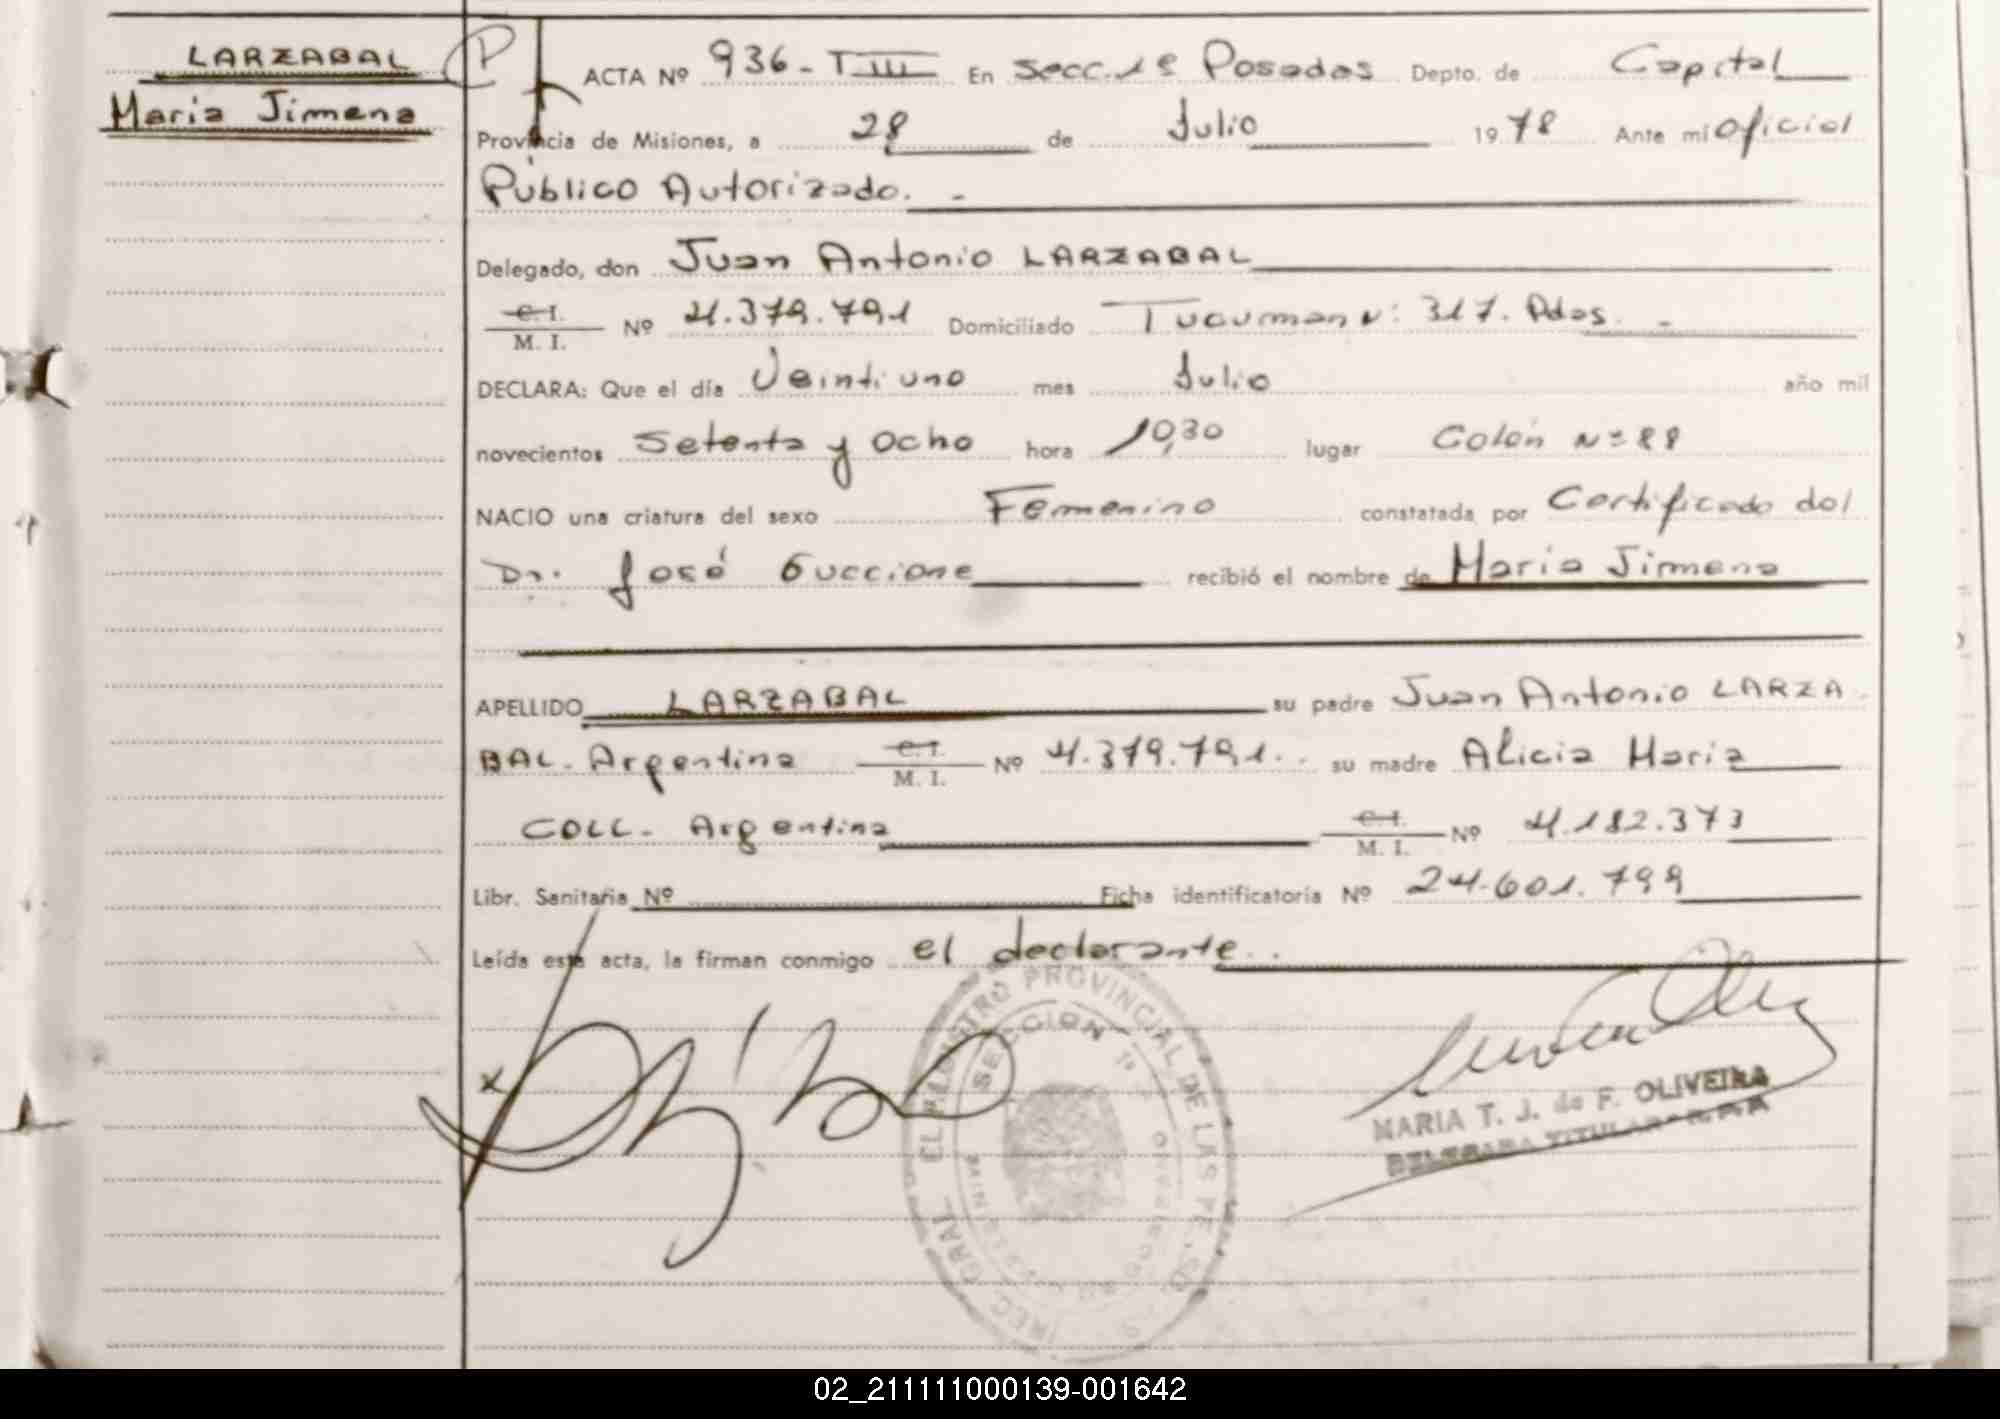 LARZABAL
Maria Jimena
P
ACTA Nº 936-TIII En Secc. 1ª Posadas Depto. de Capital
Provincia de Misiones, a 28 de Julio 1978 Ante mi Oficial
Público Autorizado. -
Delegado, don Juan Antonio LARZABAL
C. I.
M. I. Nº 4.379.791 Domiciliado Tucuman Nº 317. Pdas. -
DECLARA: Que el día Veintiuno mes Julio año mil
novecientos Setenta y Ocho hora 10,30 lugar Colón Nº 88
NACIO una criatura del sexo Femenino constatada por Certificado del
Dr. José Guccione recibió el nombre de Maria Jimena
APELLIDO LARZABAL su padre Juan Antonio LARZA
BAL. Argentina C. I. M. I. Nº 4.379.791. su madre Alicia Maria
COLL- Argentina C. I. M. I. Nº 4.182.373
Libr. Sanitaria Nº Ficha identificatoria Nº 24.601.799
Leída esta acta, la firman conmigo el declarante..
x
REGISTRO PROVINCIAL DE LAS
SECCION 1ª
MARIA T. J. de F. OLIVEIRA
TITULAR
02_211111000139-001642